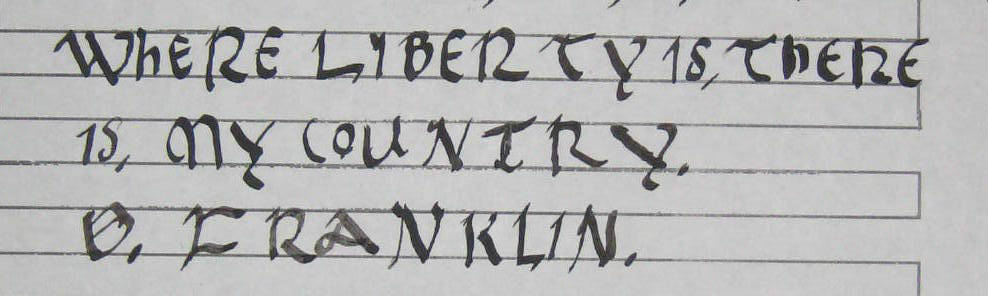 WhERE LIBERTY IS, ThERE
IS, MY COUNTRY.
B. FRANKLIN.